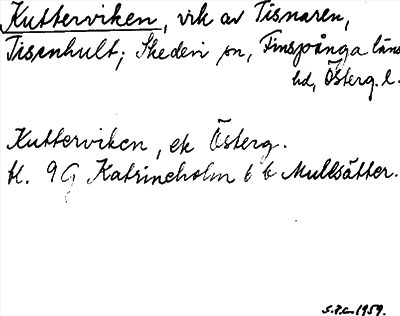 Kutterviken, vik av Tisnaren,
Tisenhult, Skedevi sn, Finspånga läns
hd, Österg. l.
Kutterviken, ek Österg.
bl. 9G Katrineholm 6 b Mullsätter.
1959.